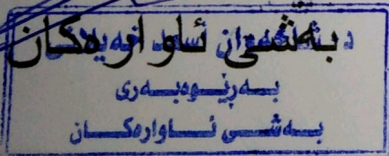 بەشی ئاوارەکان
بەڕێوەبەری
بەشی ئاوارەکان